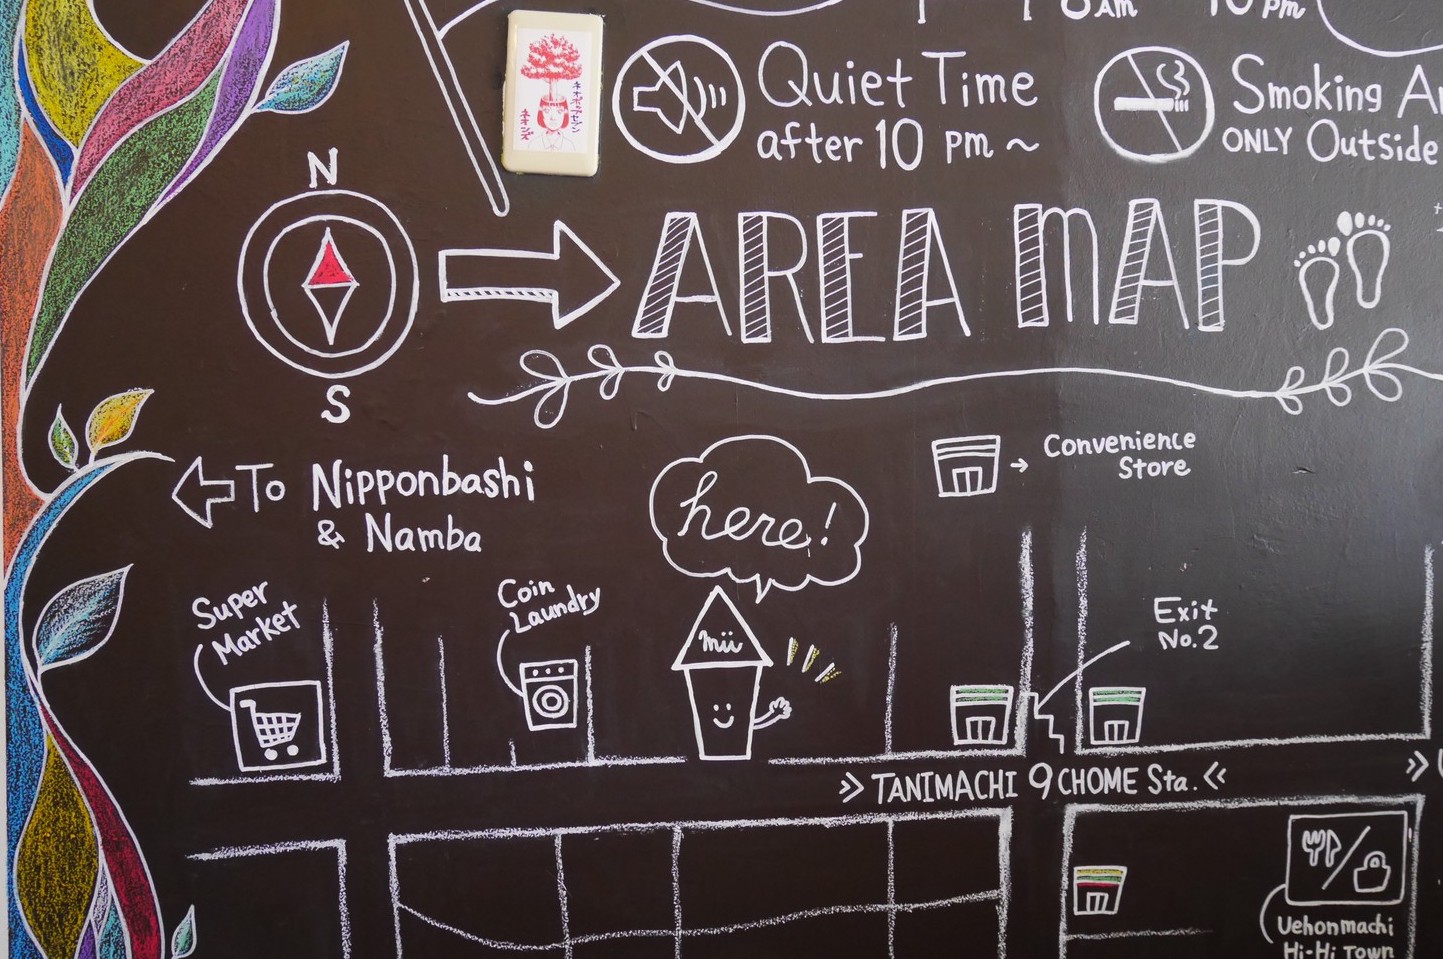 8 AM
10 pm
Quiet Time
after 10 pm ~
Smoking
ONLY Outside
N
S
AREA MAP
To Nipponbashi
& Namba
here!
Convenience
Store
Super
Market
Coin
Laundry
mii
Exit
No.2
>> TANIMACHI 9 CHOME Sta. <<
>>
Uehonmachi
Hi-Hi Town